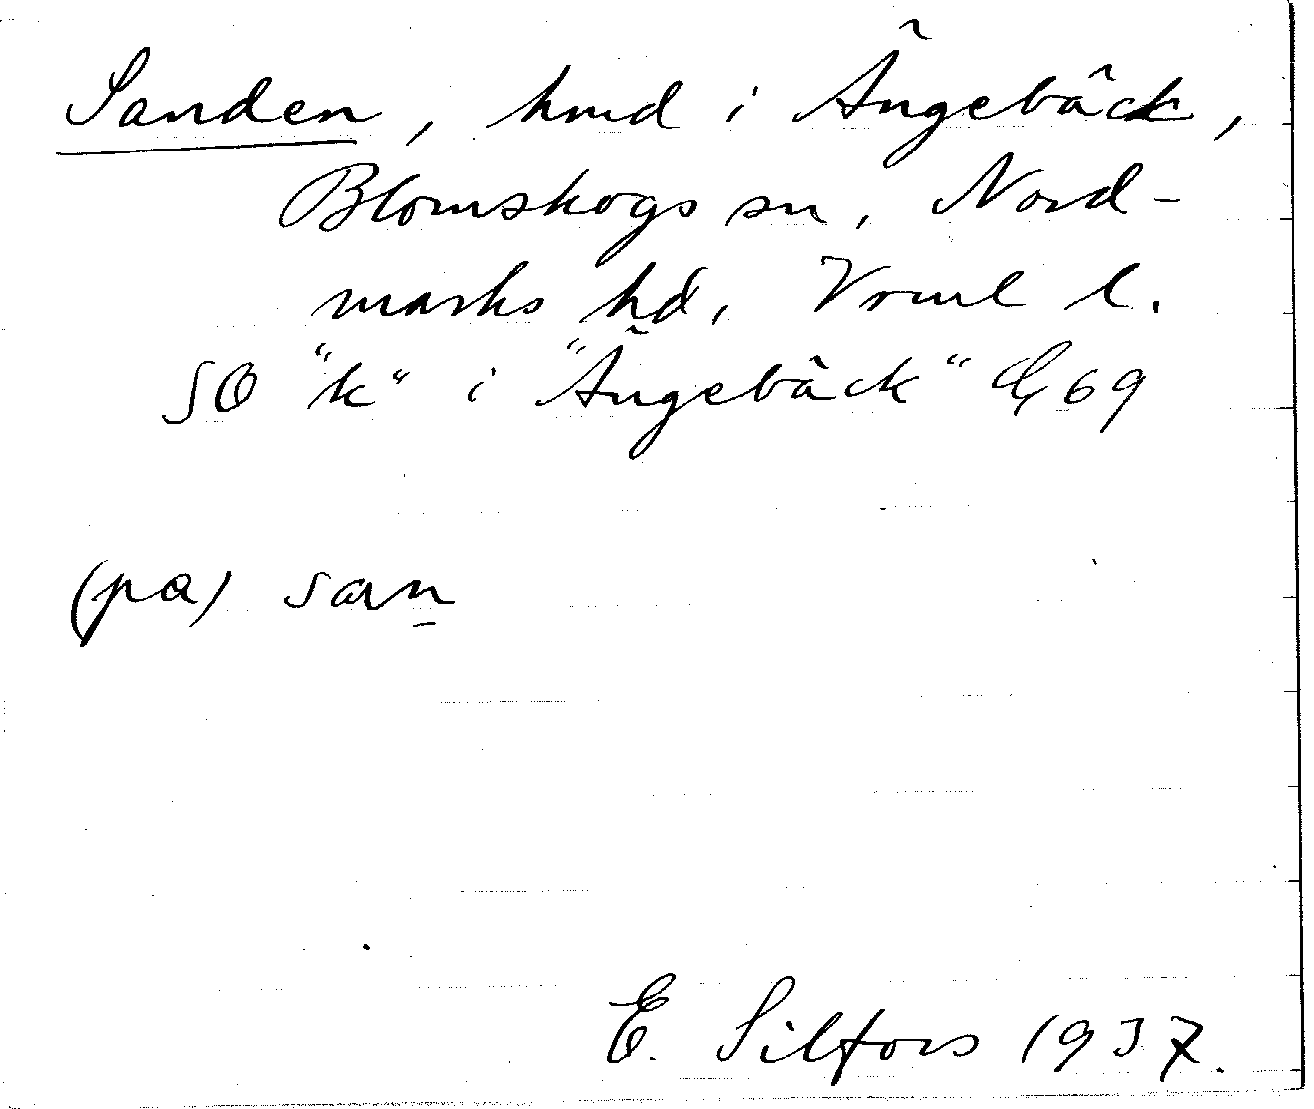 Sanden, hmd i Ängebäck,
Blomskogs sn, Nord-
marks hd, Vrml l.
SO "k" i "Ängebäck" Ek 69
(pa) san
E. Silfors 1937.